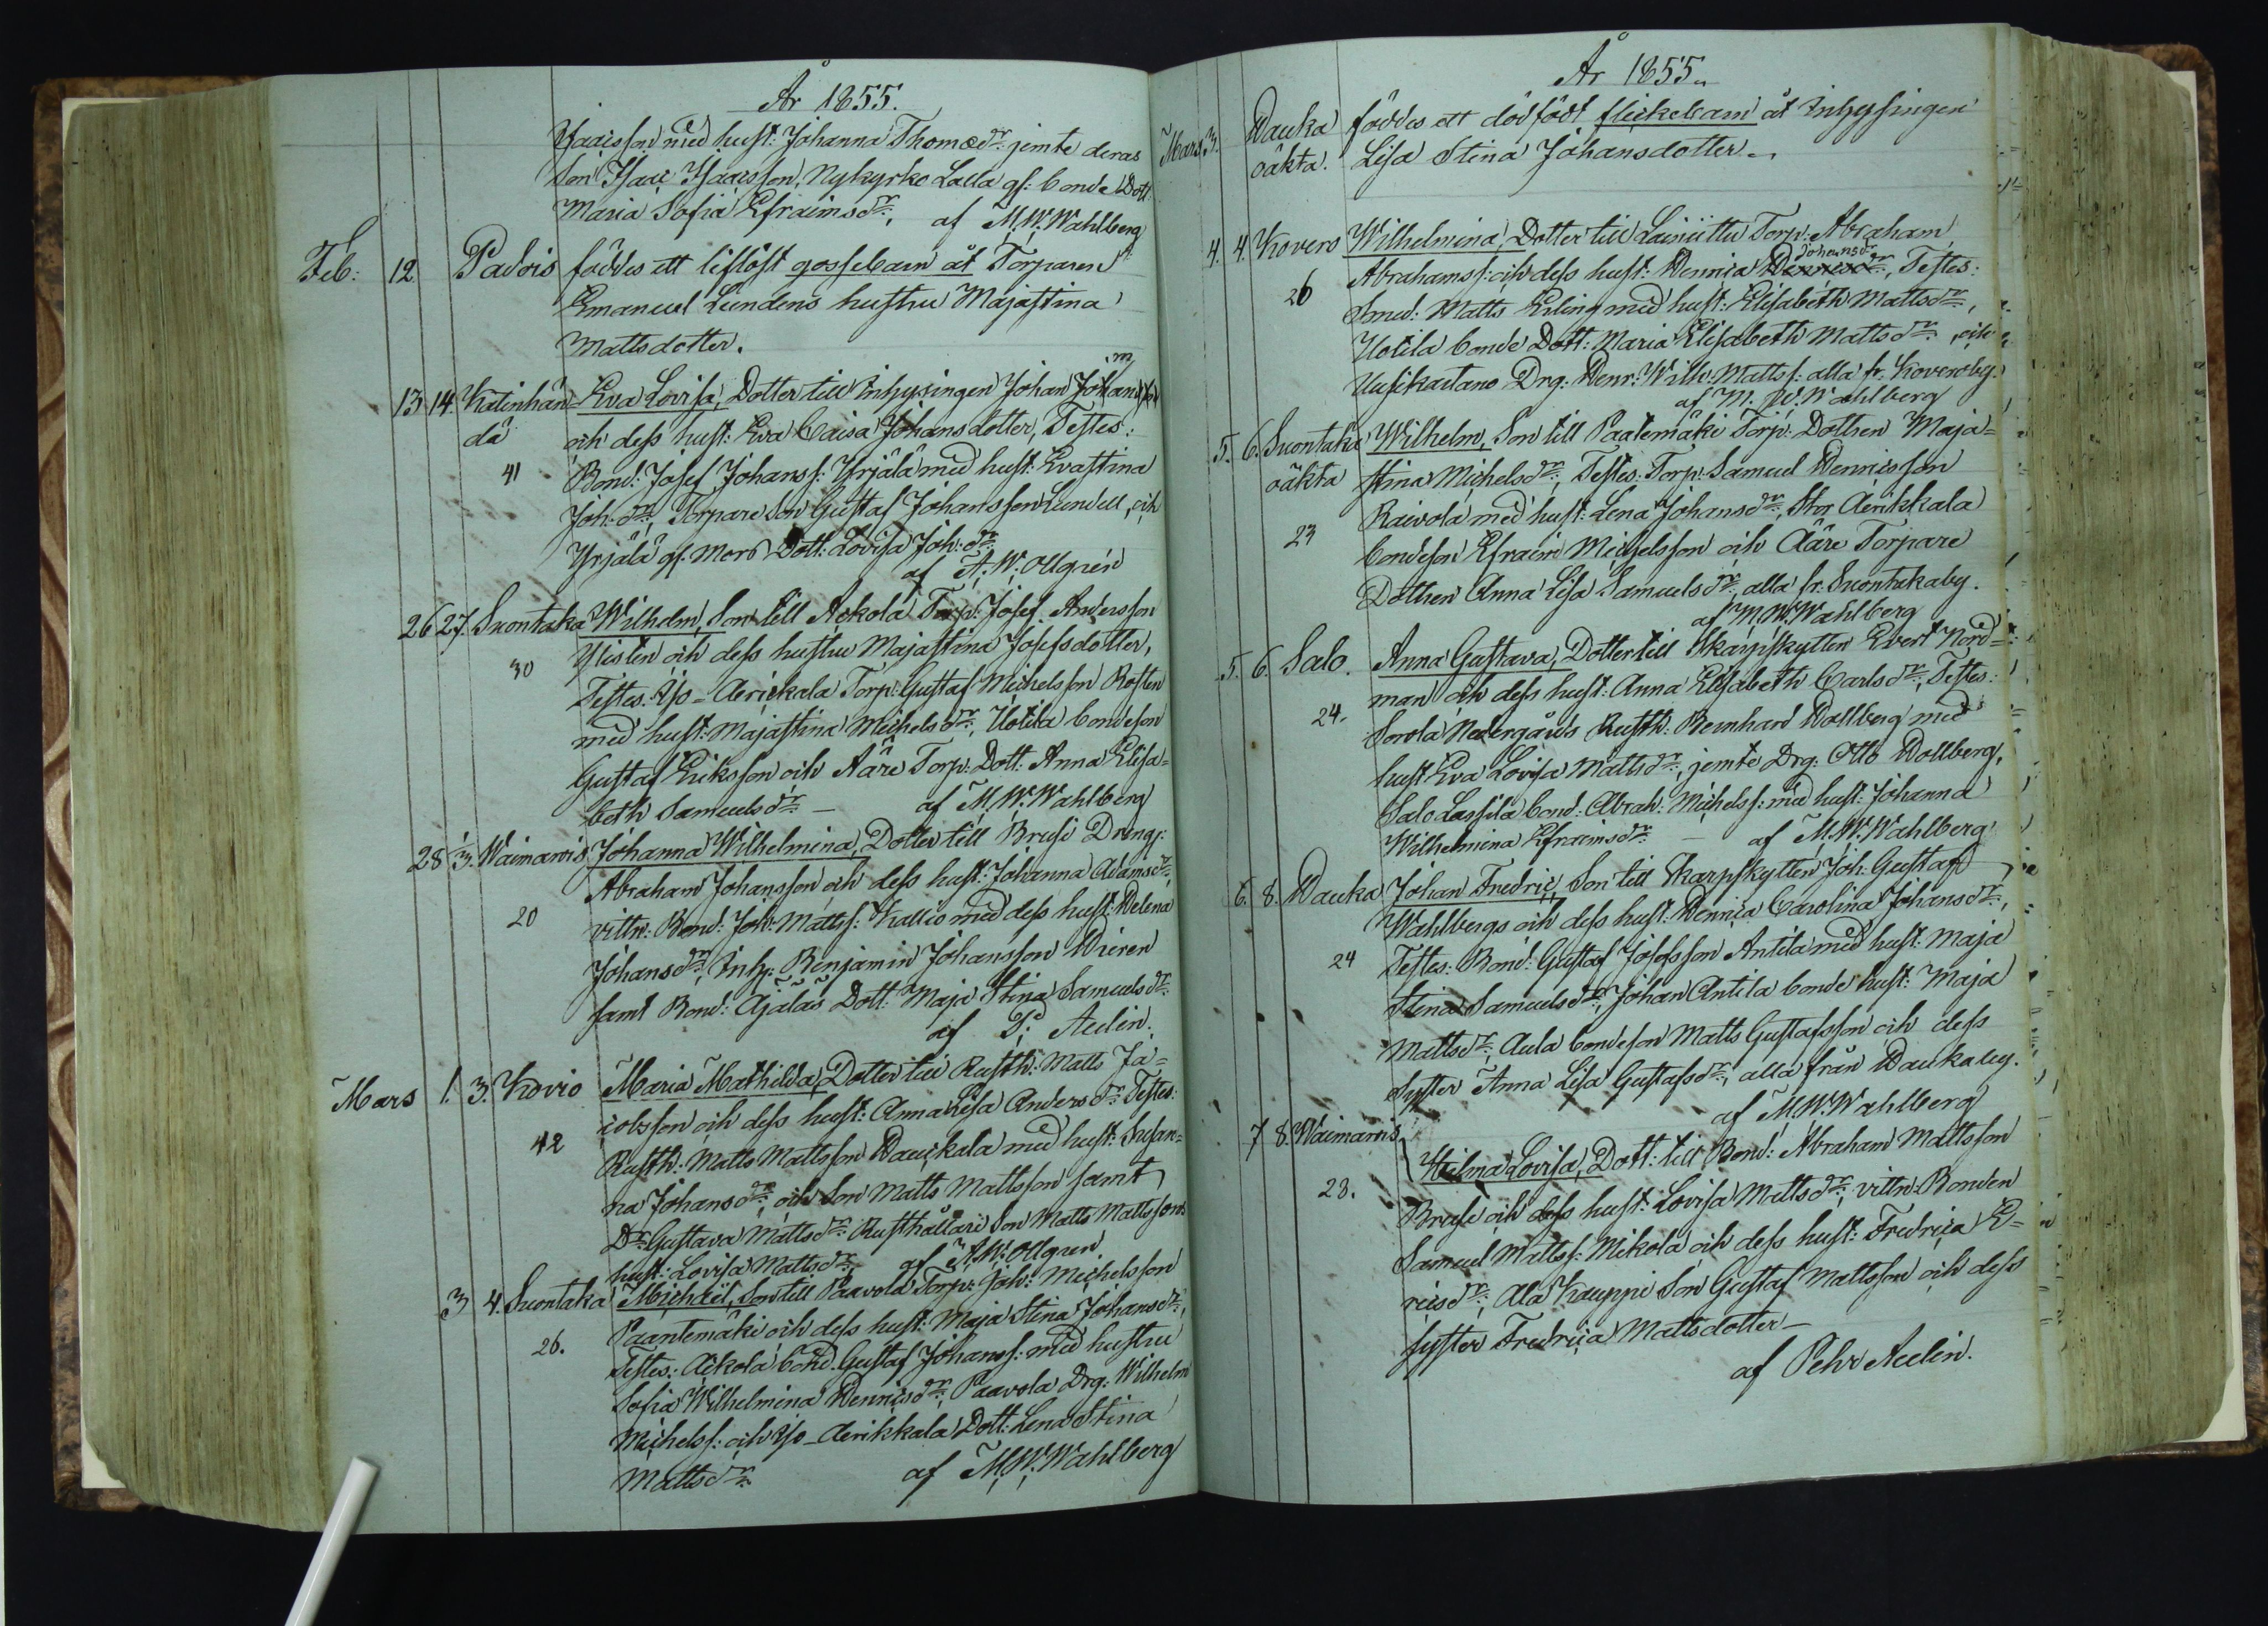 År 1855.
Isaacsson med hust: Johanna Thomædr: jemte deras
Son Isaac Isaacsson, Nykyrko Lalla gf: bonde Dott:
Maria Sofia Efraimsdr:, af M. W. Wahlberg
Feb: 12 Padois föddes ett liflöst gossebarn åt Torparen
Emanuel Lundens hustru Majastina
Mattsdotter.
13 14 Katinhän= Eva Lovisa, Dotter till Inhysingen Johan
dä och dess hust: Eva Caisa Johansdotter, Testes:
41 Bond: Josef Johanss: Yrjälä med hust: Evastina
Joh:dr:, Torpare Son Gustaf Johansson Lundell, och
Yrjälä gf: Mors Dott: Lovisa Joh:dr:
af A. W. Ollgrén
26 27. Suontaka Wilhelm, Son till Ackola Torp: Josef Andersson
30 och dess hustru Majastina Josefsdotter,
Testes. Yso-Aerickala Torp: Gustaf Michelsson Rosten
med hust: Majastina Michelsdr:, Uotila bondeson
Gustaf Eriksson och Aäre Torp: Dott: Anna Elisa=
beth Samuelsdr: – af M. W. Wahlberg
28 1/3. Waimaris Johanna Wilhelmina, Dotter till Brusi Drengs:
Abraham Johansson och dess hust: Johanna Adamsdr:,
20 vittn: Bond: Joh: Matts: Kallio med dess hust: Helena
Johansdr:, Inh: Benjamin Johansson Wiren
samt Bond: Ajalas Dott: Maja Stina Samuelsdr:
af P. Aulin.
Mars 1. 3. Kovio Maria Mathilda, Dotter till Rusth: Matts Ja=
cobsson och dess hust: Anna Lisa Andersdr: Testes:
42 Rusth: Matts Mattsson Hauckala med hust: Susan=
na Johansdr:, och Son Matts Mattsson samt
Dr: Gustava Mattsdr: Rusthållare Son Matts Mattssons
hust: Lovisa Mattsdr: af A. W. Ollgren.
3 4. Suontaka Michaël, Son till Paavola Torp: Joh: Michelsson
26. Paantemäki och dess hust: Maja Stina Johansdr:,
Testes: Ackola bond. Gustaf Johanss: med hustru
Sofia Wilhelmina Henricsdr:, Paavola Drg: Wilhelm
Michelss: och Yso-Aerikkala Dott: Lena Stina
Mattsdr: af M. W. Wahlberg
År 1855.
Mars 3. Hauka föddes ett dödfödt flickebarn åt Inhysingen
oäkta. Lisa Stina Johansdotter.
4. 4. Kovero Wilhelmina, Dotter till Torp: Abraham
Johansdr
26 Abrahamss: och dess hust: Hennica Henricsdr:, Testes:
Smed: Matts Erling med hust: Elisabeth Mattsdr:,
Uotila bonde Dott: Maria Elisabeth Mattsdr:, och
Uusikartano Drg: Henr: Wilh: Mattss: alla fr. Koveroby.
af M. W. Wahlberg
5. 6. Suontaka Wilhelm, Son till Paatemäki Torp: Dottren Maja=
oäkta stina Michelsdr:, Testes: Torp: Samuel Henricsson
23 Raivola med hust: Lena Johansdr:, Stor Aerikkala
bondeson Efraim Michelsson och Aäre Torpare
Dottren Anna Lisa Samuelsdr: alla fr. Suontakaby.
af M. W. Wahlberg
5. 6. Salo. Anna Gustava, Dotter till Skarpskytten Evert Nord=
man och dess hust: Anna Elisabeth Carlsdr:, Testes:
24. Sorola Nedergårds Rusth: Bernhard Hollberg med
hust Eva Lovisa Mattsdr:, jemte Drg: Otto Hollberg,
Salo Lassila bond: Abrah: Michelss: med hust: Johanna
Wilhelmina Efraimsdr: – af M. W. Wahlberg
6. 8. Hauka Johan Fredric, Son till Skarpskytten Joh: Gustaf
Wahlbergs och dess hust: Hennica Carolina Johansdr:,
24 Testes: Bond: Gustaf Josefsson Antila med hust: Maja
Stina Samuelsdr:, Johan Antila bonde hust: Maja
Mattsdr:, Aula bondeson Matts Gustafsson och dess
Syster Anna Lisa Gustafsdr:, alla från Haukaby.
af M. W. Wahlberg
7 8. Waimaris
23. Hilma Lovisa, Dott: till Bond: Abraham Mattsson
Bruse och dess hust: Lovisa Mattsdr:, vittn: Bonden
Samuel Mattss: Mikola och dess hust: Fredrica E=
ricsdr:, Ala Kauppi Son Gustaf Mattsson och dess
syster Fredrica Mattsdotter –
af Pehr Aulin.